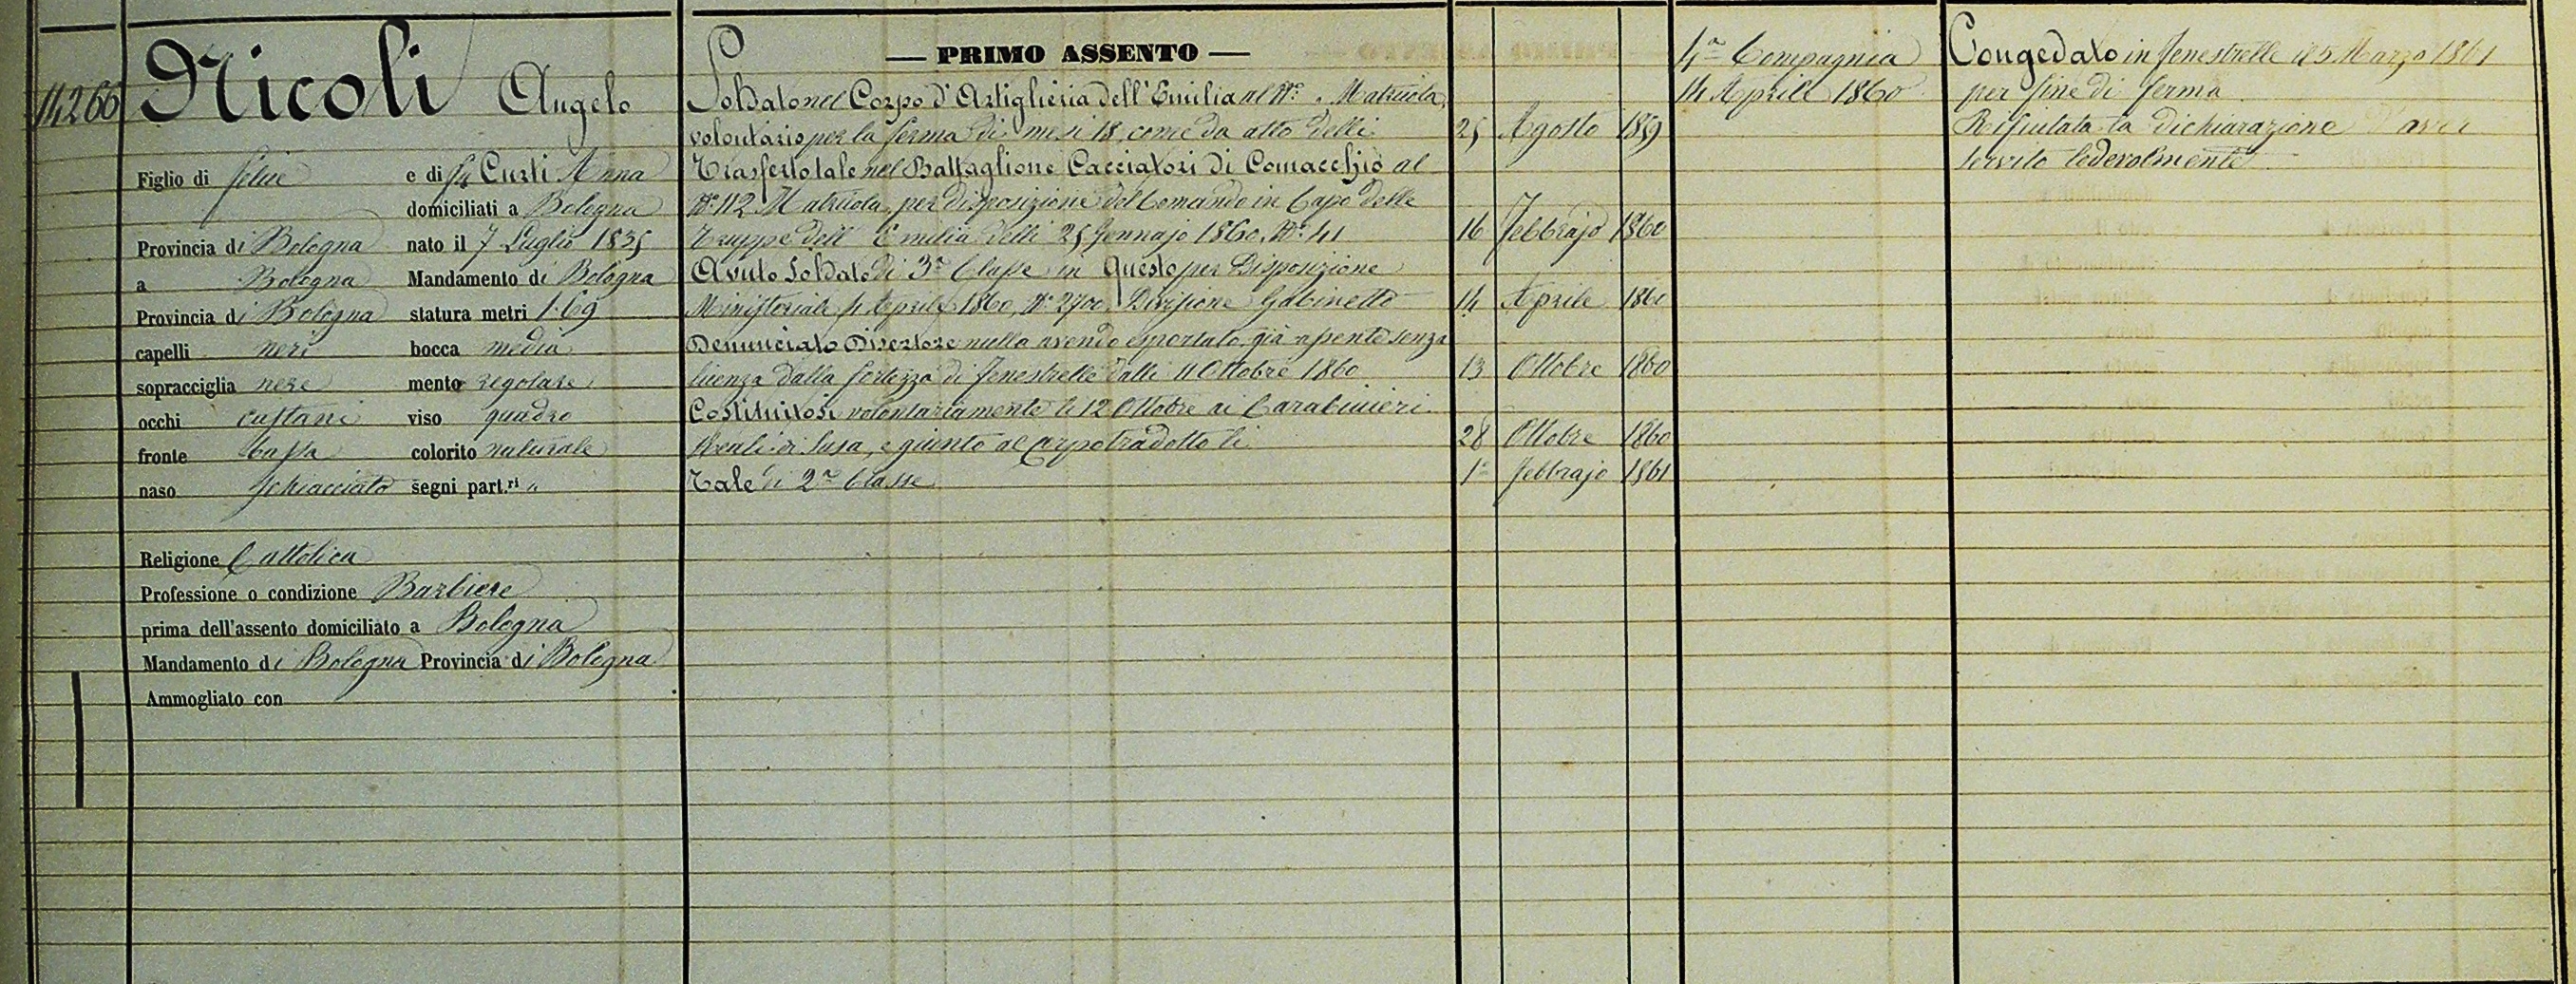 14266
Nicoli Angelo
Figlio di Felice e di fu Curti Anna
domiciliati a Bologna
Provincia di Bologna nato il 7 Luglio 1835
a Bologna Mandamento di Bologna
Provincia di Bologna statura metri 1.69
capelli neri bocca media
sopracciglia nere mento regolare
occhi castani viso quadro
fronte bassa colorito naturale
naso schiacciato segni part.ri "
Religione Cattolica
Professione o condizione Barbiere
prima dell'assento domiciliato a Bologna
Mandamento di Bologna Provincia di Bologna
Ammogliato con
— PRIMO ASSENTO —
Soldato nel Corpo d'Artiglieria dell'Emilia al N.º " Matricola,
volontario per la ferma di mesi 18, come da atto delli 25 Agosto 1859
Trasferto tale nel Battaglione Cacciatori di Comacchio al
N.º 112 Matricola, per disposizione del Comando in Capo delle
Truppe dell'Emilia delli 25 Gennajo 1860, N.º 41 16 Febbrajo 1860
Avuto Soldato di 3ª Classe in Questo per Disposizione
Ministeriale 4 Aprile 1860, N.º 2700, Divisione Gabinetto 14 Aprile 1860
Denunciato Disertore nulla avendo esportato, già assente senza
licenza dalla fortezza di Fenestrelle dalli 11 Ottobre 1860 13 Ottobre 1860
Costituitosi volontariamente li 12 Ottobre ai Carabinieri
Reali di Susa, e giunto al Corpo tradotto li 28 Ottobre 1860
Tale di 2ª Classe 1º Febbrajo 1861
4ª Compagnia
14 Aprile 1860
Congedato in Fenestrelle il 5 Marzo 1861
per fine di ferma
Rifiutata la dichiarazione d'aver
servito lodevolmente